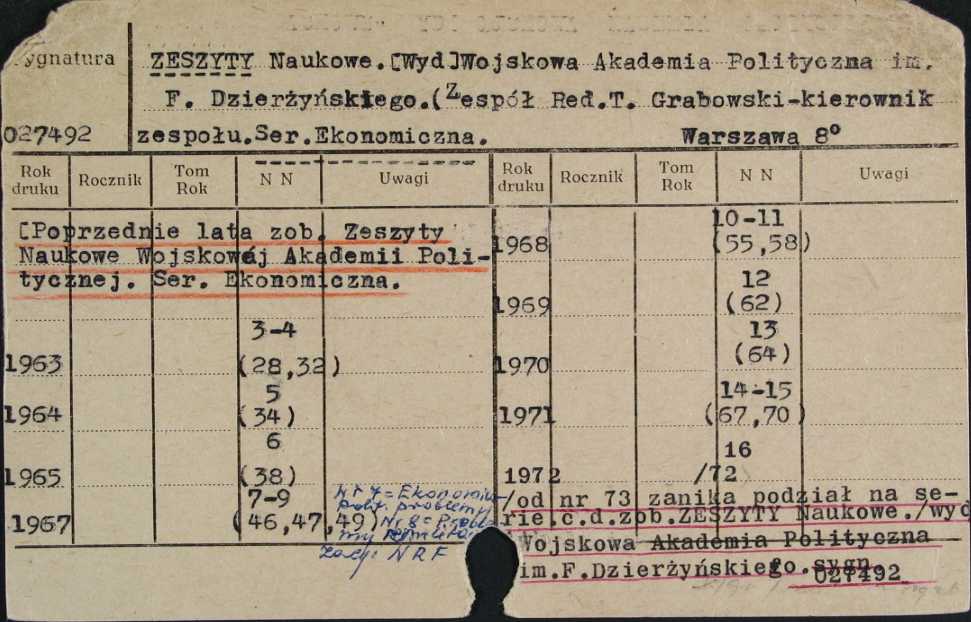 Sygnatura
ZESZYTY Naukowe.[Wyd]Wojskowa Akademia Polityczna im.
F. Dzierżyńskiego.(Zespół Red.T. Grabowski-kierownik
027492 zespołu.Ser.Ekonomiczna. Warszawa 8°
Rok druku Rocznik Tom Rok N N Uwagi Rok druku Rocznik Tom Rok N N Uwagi
[Poprzednie lata zob. Zeszyty
Naukowe Wojskowej Akademii Poli-
tycznej. Ser. Ekonomiczna.
3-4
1963 (28,32)
5
1964 (34)
6
1965 (38)
7-9
1967 (46,47,49)
Nr 7 = Ekonomia
polit. problemy
Nr 8 =
NRF
10-11
1968 (55,58)
12
1969 (62)
13
1970 (64)
14-15
1971 (67,70)
16
1972 /72
/od nr 73 zanika podział na se-
rie.c.d.zob.ZESZYTY Naukowe./wyd
Wojskowa Akademia Polityczna
im.F.Dzierżyńskiego.sygn.
027492